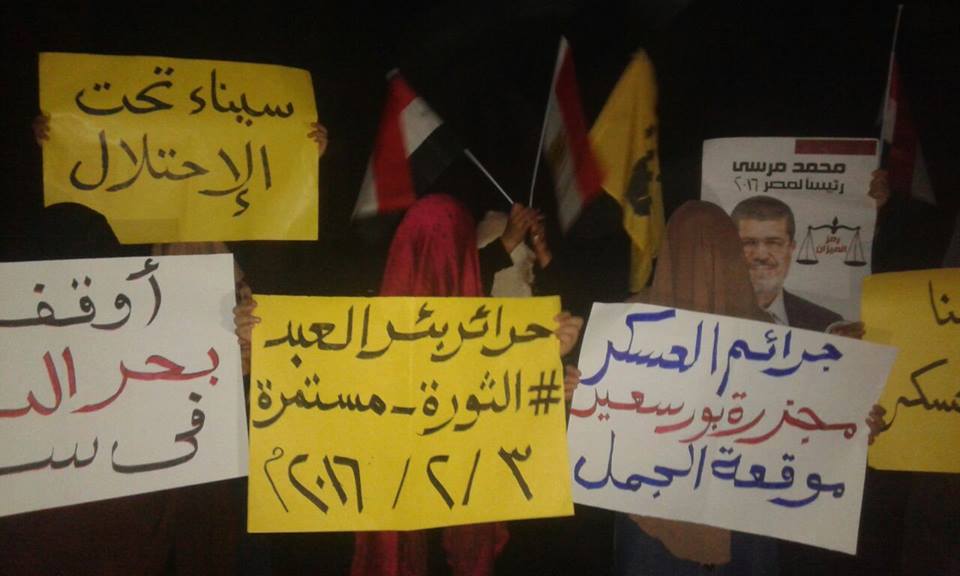 سيناء تحت
الإحتلال
محمد مرسى
رئيسا لمصر ٢٠١٦
رمز
الميزان
أوقف
بحر ال
فى س
حرائر بئر العبد
#الثورة_مستمرة
٣ / ٢ / ٢٠١٦م
جرائم العسكر
مجزرة بورسعيد
موقعة الجمل